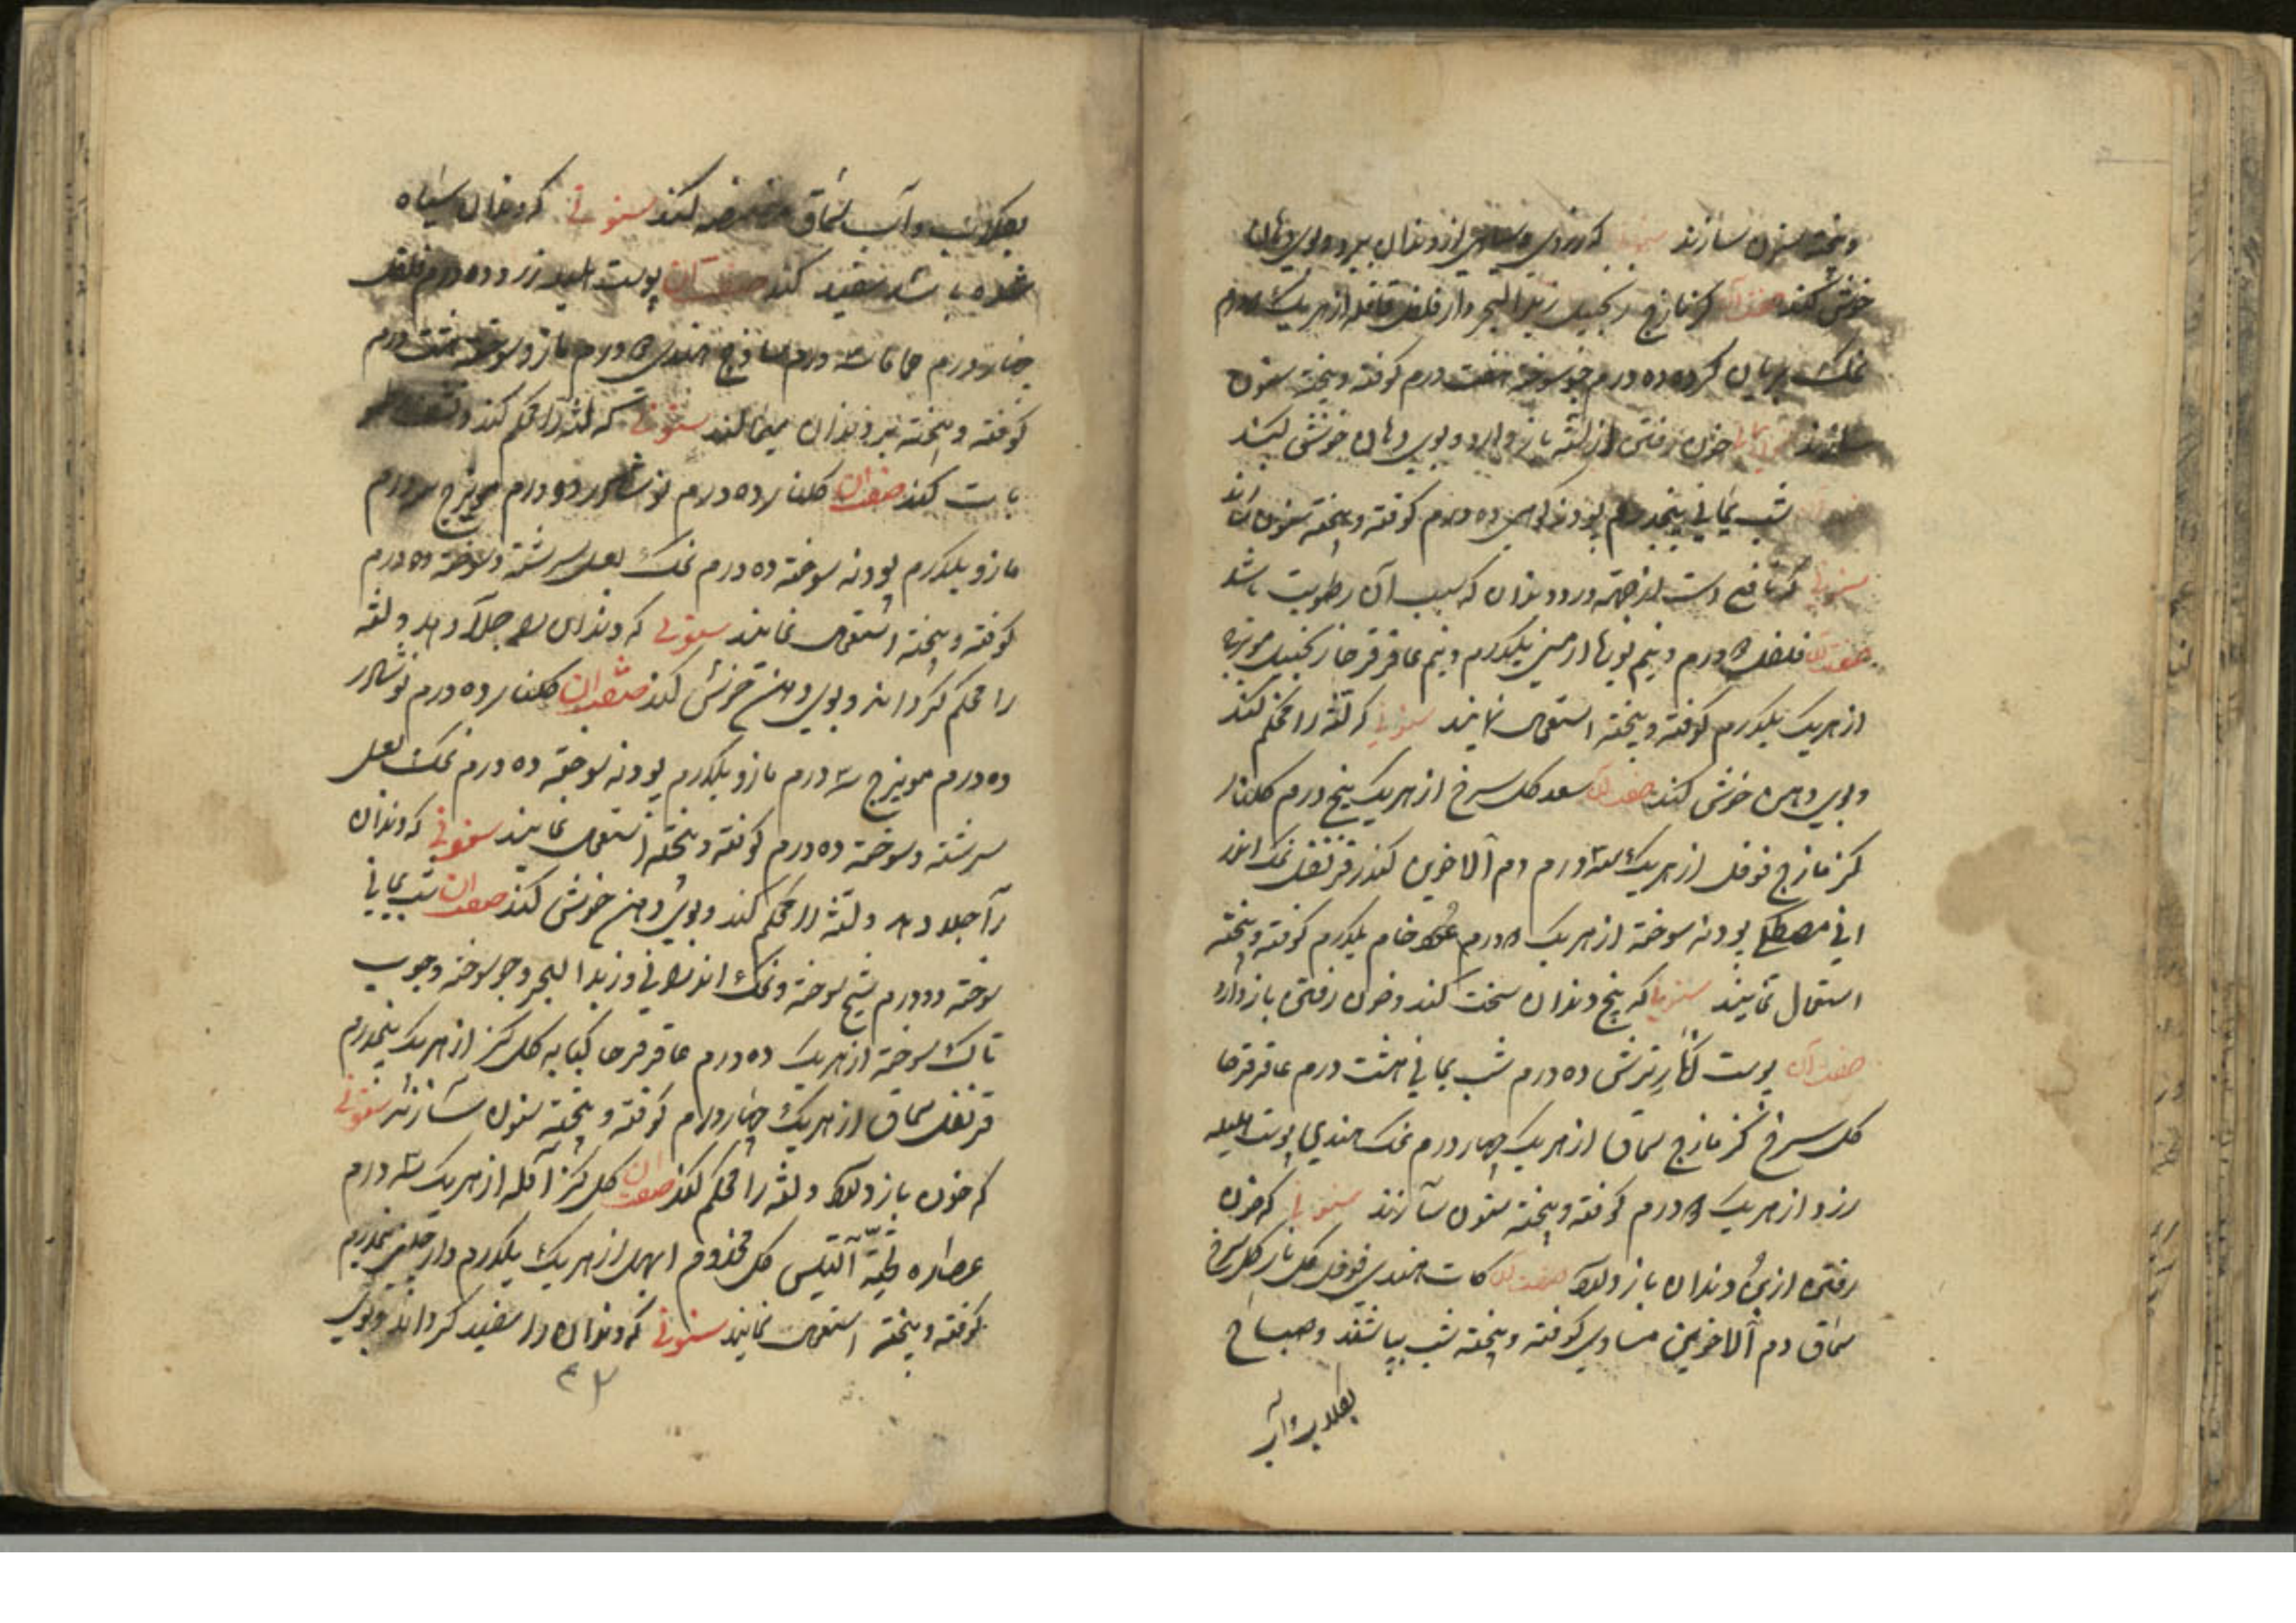 و پخته سنون سازند سنونی که زردی و سیاهی از دندان ببرد و بوی دهان
خوش کند صفت آن کزمازج زنجبیل زبد البحر دار فلفل قاقله از هریک درم
نمک بریان کرده ده درم جو سوخته هفت درم کوفته و بیخته سنون
سازند خون رفتن از لثه باز دارد و بوی دهان خوش کند
شب یمانی پنجدرم پودنه کوهی ده درم کوفته و بیخته سنون سازند
سنونی که نافع است از جهة درد دندان که سبب آن رطوبت باشد
صفت آن فلفل درم و نیم بوره ارمنی یکدرم و نیم عاقرقرحا زنجبیل مویزج
از هریک یکدرم کوفته و بیخته استعمال نمایند سنونی که لثه را محکم کند
و بوی دهن خوش کند صفت آن سعد کل سرخ از هریک پنج درم کلنار
کزمازج فوفل از هریک سه درم دم الاخوین کندر قرنفل نمک اندر
انی مصطکی پودنه سوخته از هریک درم عود خام یکدرم کوفته و بیخته
استعمال نمایند سنونی که بیخ دندان سخت کند و خون رفتن باز دارد
صفت آن پوست انار ترش ده درم شب یمانی هشت درم عاقرقرحا
کل سرخ کزمازج سماق از هریک چهار درم نمک هندی پوست هلیله
زرد از هریک درم کوفته و بیخته سنون سازند سنونی که خون
رفتن از بن دندان باز دارد صفت آن کات هندی فوفل کلنار کل سرخ
سماق دم الاخوین مساوی کوفته و بیخته شب بپاشند و صباح
بکلاب و آب
بکلاب و آب سماق مضمضه کنند سنونی که دندان سیاه
شده باشد سفید کند صفت آن پوست هلیله زرد ده درم فلفل
چهار درم حماما سه درم ساذج هندی درم مازو سوخته هشت درم
کوفته و بیخته بر دندان میمالند سنونی که لثه را محکم کند و
بات کند صفت آن کلنار ده درم نوشادر دو درم مویزج درم
مازو یکدرم پودنه سوخته ده درم نمک بعسل سرشته و سوخته ده درم
کوفته و بیخته استعمال نمایند سنونی که دندان را جلا دهد و لثه
را محکم کرداند و بوی دهن خوش کند صفت آن کلنار ده درم نوشادر
ده درم مویزج سه درم مازو یکدرم پودنه سوخته ده درم نمک بعسل
سرشته و سوخته ده درم کوفته و بیخته استعمال نمایند سنونی که دندان
را جلا دهد و لثه را محکم کند و بوی دهن خوش کند صفت آن شب یمانی
سوخته دو درم شیح سوخته و نمک اندرانی و زبد البحر و جو سوخته و چوب
تاک سوخته از هریک ده درم عاقرقرحا کبابه کل کز از هریک پنجدرم
قرنفل سماق از هریک چهار درم کوفته و بیخته سنون سازند سنونی
که خون باز دارد و لثه را محکم کند صفت آن کل کز آمله از هریک سه درم
عصاره لحیة التیس کل مختوم ابهل از هریک یکدرم دار پنجدرم
کوفته و بیخته استعمال نمایند سنونی که دندان را سفید کرداند و بوی